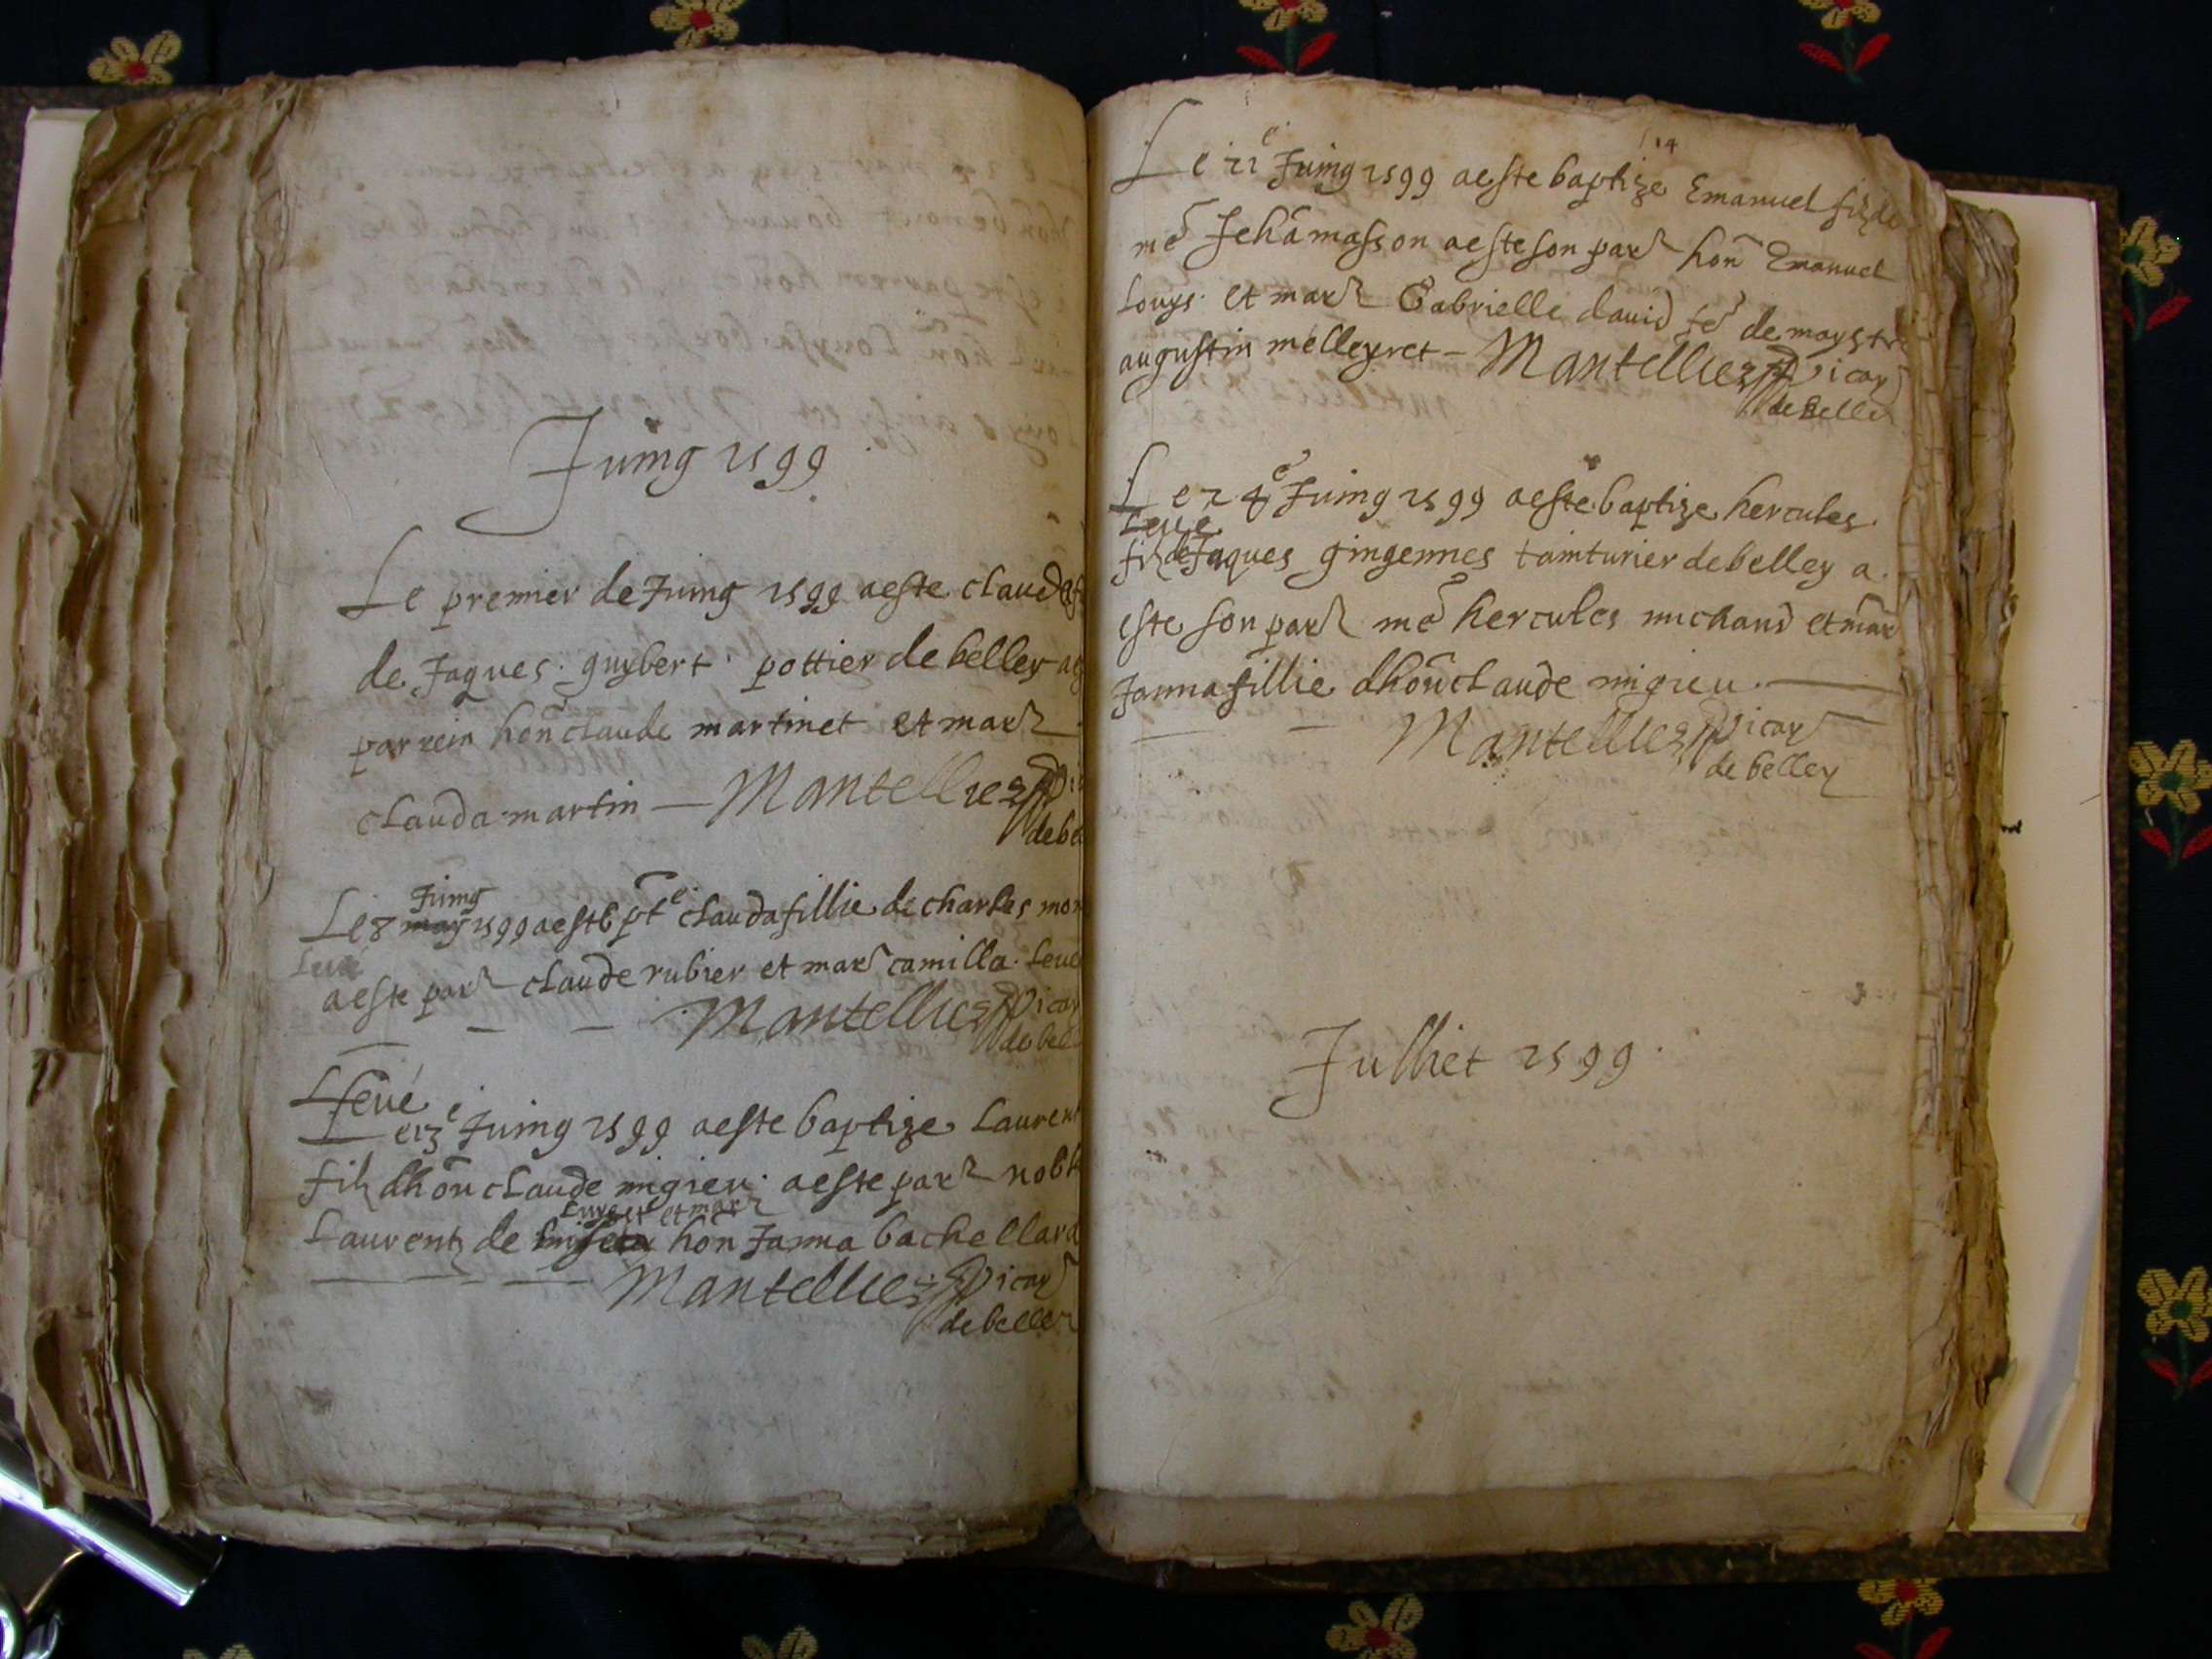 Juing 1599
Le premier de Juing 1599 a este clauda
de Jaques guybert pottier de belley a
parrein hon claude martinet et marr
clauda martin Mantellier Vi
de be
Juing
Le 8 may 1599 a este bpte clauda fillie de charles mon
Levé
a este parr claude rubier et marr camilla
Mantellier Vicar
de bell
Levé
Le 13e Juing 1599 a este baptize Laurent
filz dhon claude migieu a este parr noble
et marr
Laurent de hon Janna bachellard
Mantellier Vicar
de belley
14
Le 11e Juing 1599 a este baptize Emanuel filz de
me Jehā masson a este son parr hon Emanuel
Louys et marr Gabrielle david fe de maystre
augustin melleyret Mantellier Vicar
de Belley
Le 24e Juing 1599 a este baptize hercules
Levé
filz de Jaques gingennes tainturier de belley a
este son parr me hercules michaud et marr
Janna fillie dhon claude migieu
Mantellier Vicar
de belley
Julliet 1599